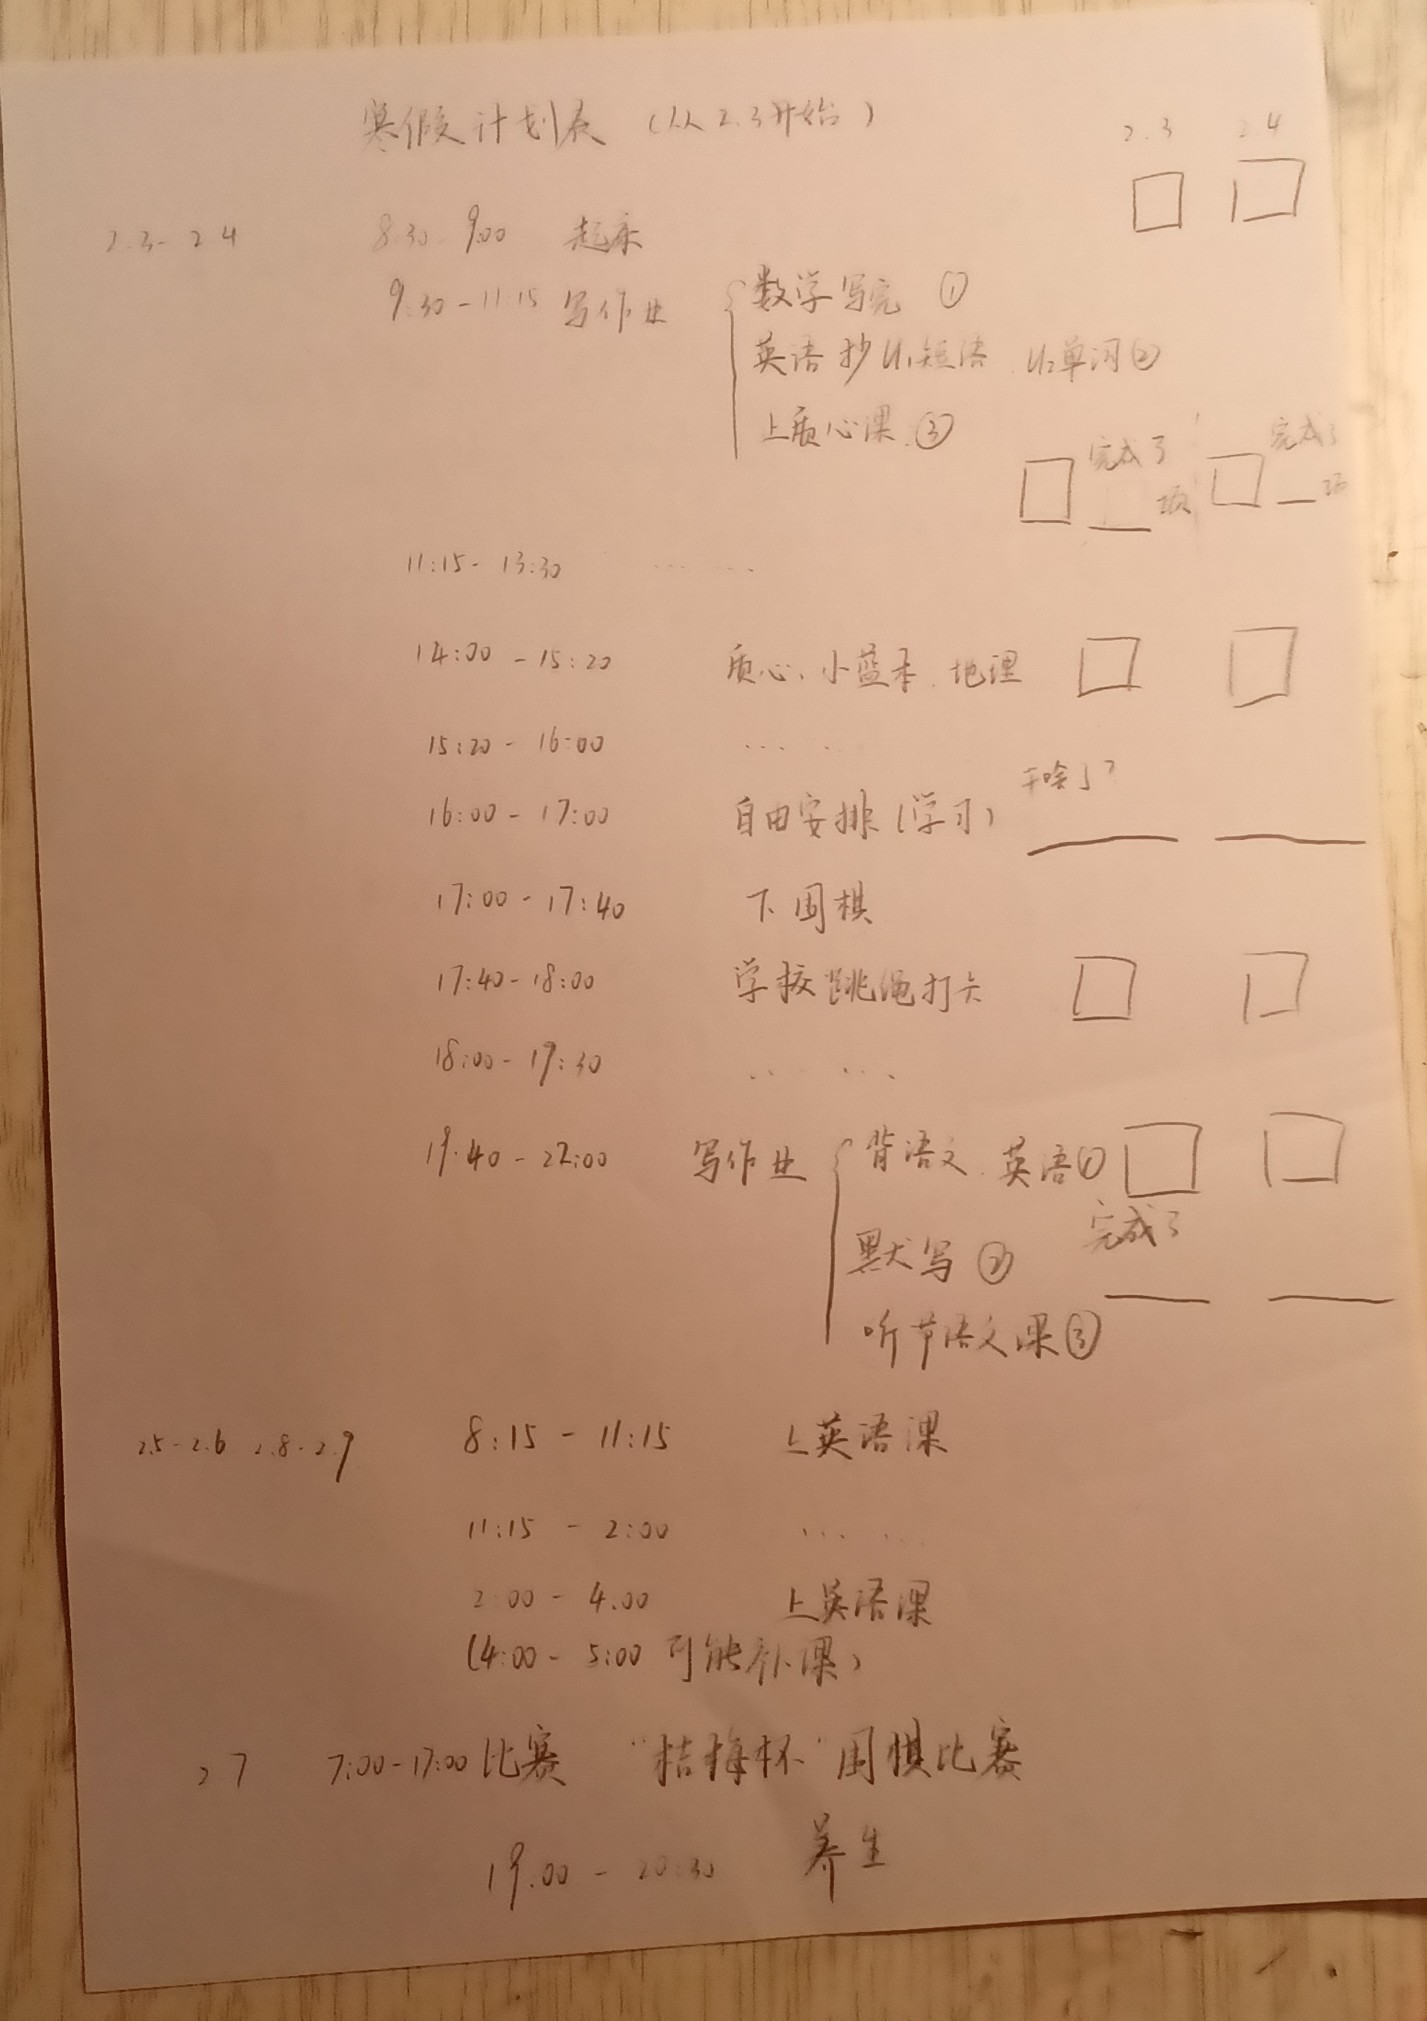 寒假计划表（从2.3开始）
2.3 2.4
2.3-2.4 8:30-9:00 起床
9:30-11:15 写作业 数学写完 ①
英语抄U1短语 U2单词②
上质心课 ③
完成了 完成了
项 项
11:15-13:30 ……
14:00-15:20 质心、小蓝本、地理
15:20-16:00 ……
干啥了?
16:00-17:00 自由安排（学习）
17:00-17:40 下围棋
17:40-18:00 学校跳绳打卡
18:00-19:30 ……
19:40-22:00 写作业 背语文、英语①
完成了
默写 ②
听节语文课③
2.5-2.6 2.8-2.9 8:15-11:15 上英语课
11:15-2:00 ……
2:00-4:00 上英语课
(4:00-5:00 可能补课)
2.7 7:00-17:00 比赛 “桔梅杯”围棋比赛
19:00-20:30 养生